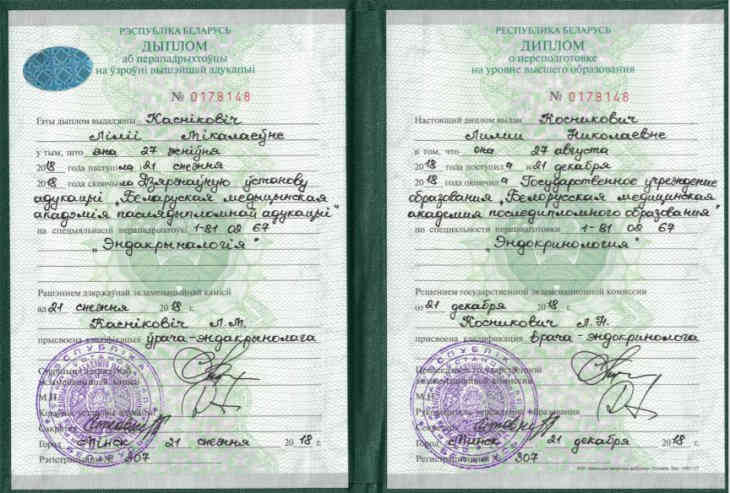 РЭСПУБЛІКА БЕЛАРУСЬ
ДЫПЛОМ
аб перападрыхтоўцы
на ўзроўні вышэйшай адукацыі
№ 0178148
Гэты дыплом выдадзены Касніковіч
Ліліі Мікалаеўне
у тым, што яна 27 жніўня
2018 года паступіла 21 снежня
2018 года скончыла Дзяржаўную ўстанову
адукацыі "Беларуская медыцынская
акадэмія паслядыпломнай адукацыі"
па спецыяльнасці перападрыхтоўкі 1-81 02 67
"Эндакрыналогія"
Рашэннем дзяржаўнай экзаменацыйнай камісіі
ад 21 снежня 2018 г.
Касніковіч Л.М.
прысвоена кваліфікацыя ўрача-эндакрынолага
М.П.
Горад Мінск 21 снежня 2018 г.
Рэгістрацыйны № 307
РЕСПУБЛИКА БЕЛАРУСЬ
ДИПЛОМ
о переподготовке
на уровне высшего образования
№ 0178148
Настоящий диплом выдан Косникович
Лилии Николаевне
в том, что она 27 августа
2018 года поступила и 21 декабря
2018 года окончила Государственное учреждение
образования "Белорусская медицинская
академия последипломного образования"
по специальности переподготовки 1-81 02 67
"Эндокринология"
Решением государственной экзаменационной комиссии
от 21 декабря 2018 г.
Косникович Л.Н.
присвоена квалификация врача-эндокринолога
Председатель государственной
экзаменационной комиссии
М.П.
Руководитель учреждения образования
Секретарь
Город Минск 21 декабря 2018 г.
Регистрационный № 307